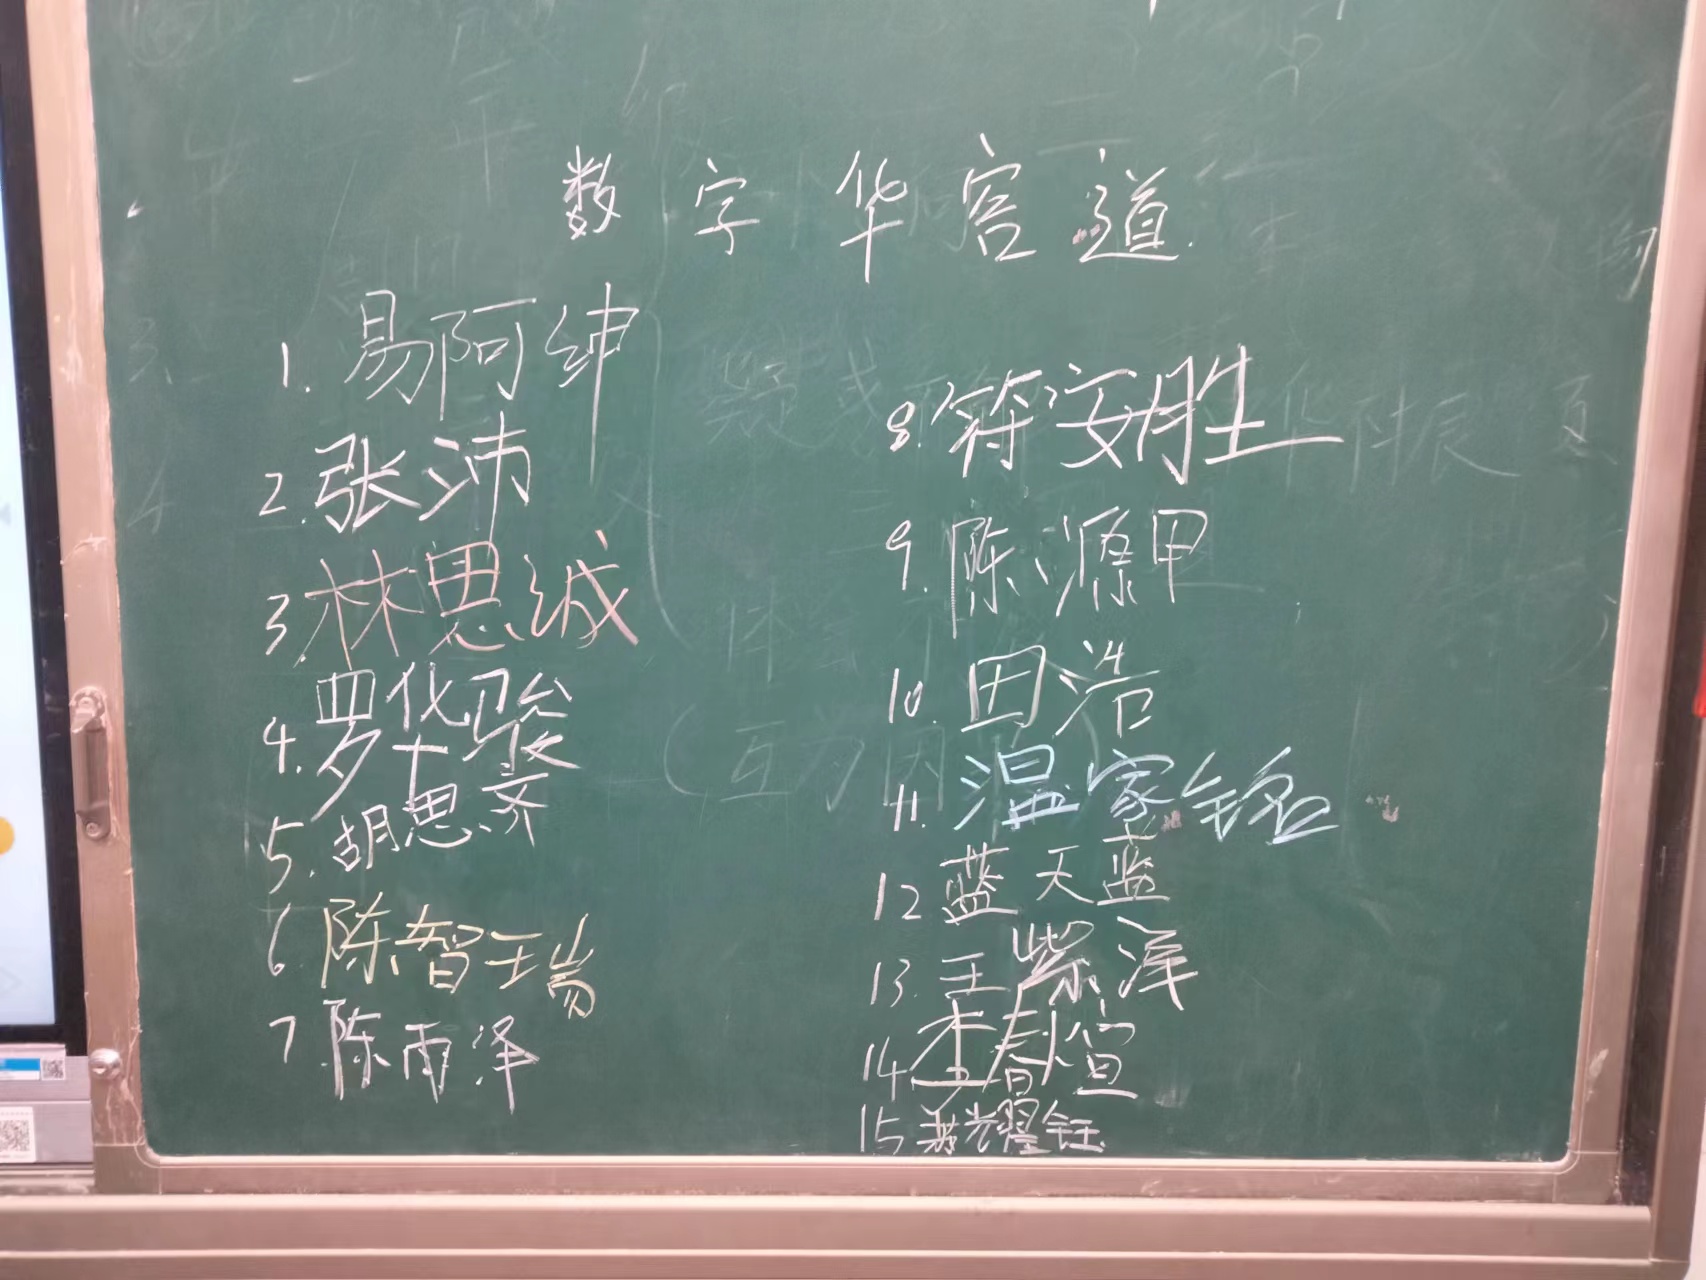 数字华容道
1. 易阿绅
2. 张沛
3. 林思诚
4. 罗华骏
5. 胡思齐
6. 陈智瑞
7 陈雨泽
8. 符安胜
9. 陈源甲
10. 田浩
11. 温家铭
12 蓝天蓝
13. 王紫泽
14 李春煊
15 耀钰